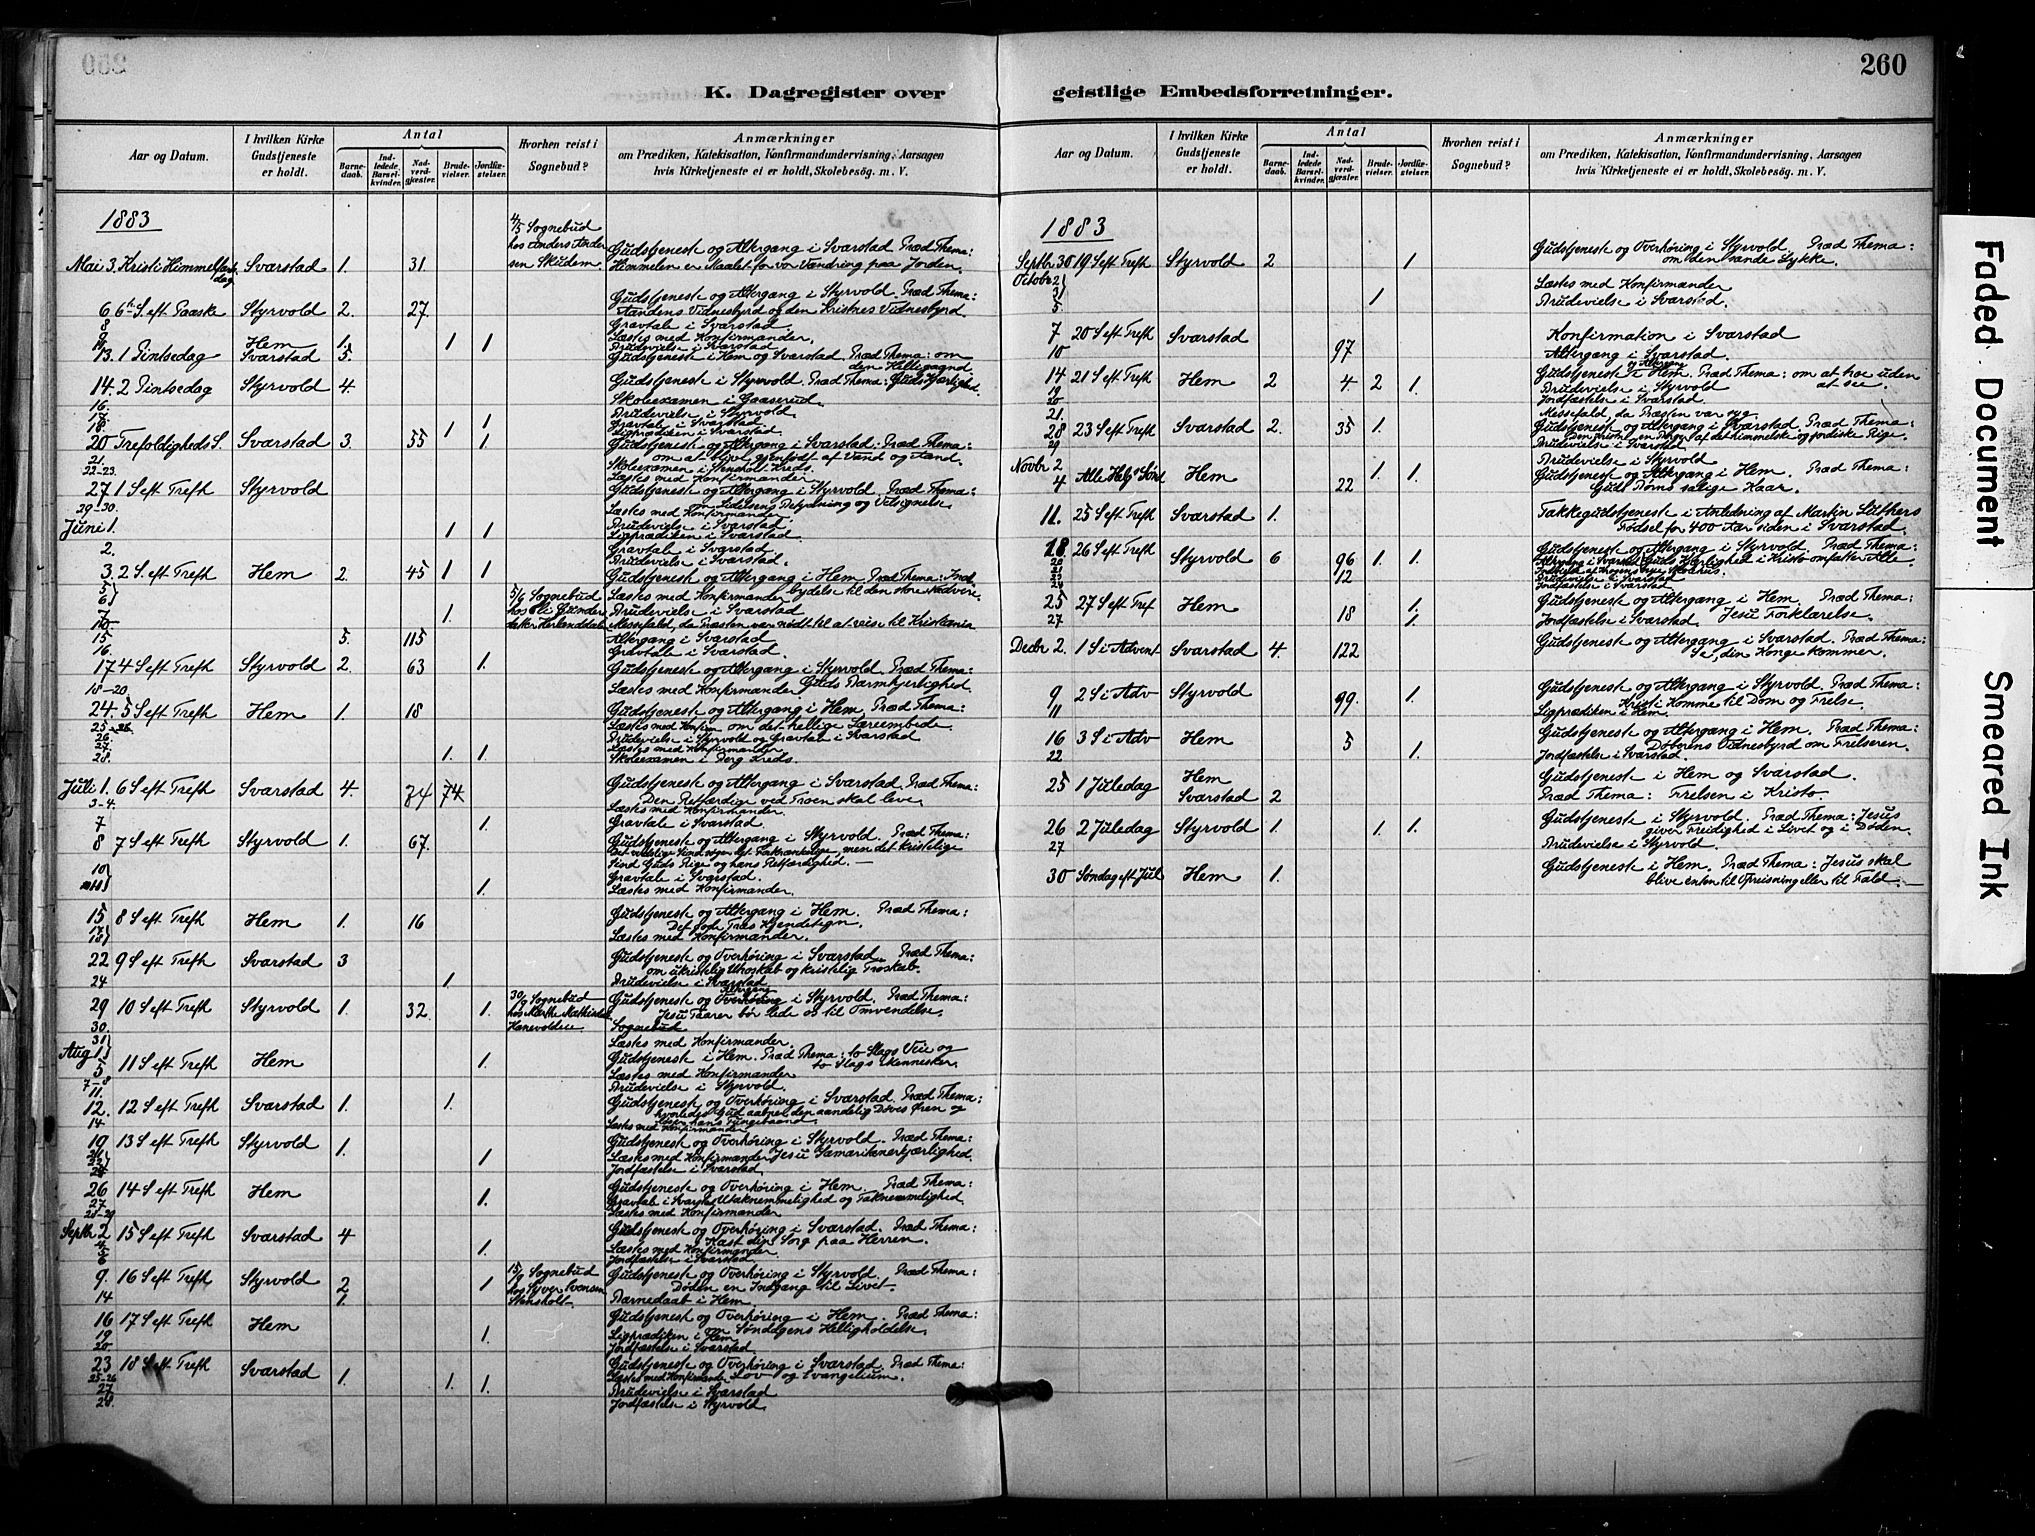 260
K. Dagregister over geistlige Embedsforretninger.
Aar og Datum.
I hvilken Kirke Gudstjeneste er holdt.
Antal
Barnedaab.
Indledede Barselkvinder.
Nadverdgjæster.
Brudevielser.
Jordfæstelser.
Hvorhen reist i Sognebud?
Anmærkninger
om Prædiken, Katekisation, Konfirmandundervisning, Aarsagen
hvis Kirketjeneste ei er holdt, Skolebesög. m. V.
1883
4/5 Sognebud
hos Anders Andersen Skudem.
Mai 3. Kristi Himmelfartsdag Svarstad 1. 31. Gudstjeneste og Altergang i Svarstad. Præd Thema:
Himmelen er Maalet for vor Vandring paa Jorden.
6 6te S. eft Paaske Styrvold 2. 27. Gudstjeneste og Altergang i Styrvold. Præd Thema:
Aandens Vidnesbyrd og den Kristnes Vidnesbyrd.
8 Gravtale i Svarstad.
9 Læstes med Konfirmander.
Brudevielse i Svarstad
13. 1 Pintsedag Hem 1. Svarstad 5. 1 1 Gudstjeneste i Hem og Svarstad Præd Thema: om
den Helligaand
14. 2 Pintsedag Styrvold 4. Gudstjeneste i Styrvold. Præd Thema: Guds Kjærlighed.
16. Skoleexamen i Gaaserud.
17. Brudevielse i Styrvold.
18. Gravtale i Svarstad.
Ligprædiken i Svarstad
20 Trefoldigheds S. Svarstad 3 55 1 1 Gudstjeneste og Altergang i Svarstad. Præd Thema:
om at blive gjenfødt af Vand og Aand.
21. Skoleexamen i Stensholt Kreds.
22-23. Læstes med Konfirmander
27 1 S eft Trefh Styrvold Gudstjeneste og Altergang i Styrvold. Præd Thema:
om Lidelsens Betydning og Velsignelse
29-30. Læstes med Konfirmander
Juni 1. 1 1 Brudevielse i Svarstad.
Ligprædiken i Svarstad.
2. Gravtale i Svarstad
Brudevielse i Svarstad.
3. 2 S. eft Trefh Hem 2. 45 1 1 Gudstjeneste og Altergang i Hem Præd Thema: Indbydelse til den store Nadvere.
5 6 5/6 Sognebud Læstes med Konfirmander
7 hos Gunders 1. Brudevielse i Svarstad
10 Messefald, da Præsten var nødt til at reise til Kristiania
15 5. 115 Altergang i Svarstad
16. Gravtale i Svarstad.
17 4 S eft Trefh Styrvold 2. 63 1. Gudstjeneste og Altergang i Styrvold. Præd Thema:
Guds Barmhjertighed.
18-20. Læstes med Konfirmander
24. 5 S eft Trefh Hem 1. 18 Gudstjeneste og Altergang i Hem. Præd Thema:
om det hellige Læreembede
25 26. Læstes med Konfirm
26. Brudevielse i Styrvold og Gravtale i Svarstad
27. Læstes med Konfirmander
28. 1. 1. Skoleexamen i Berg Kreds.
Juli 1. 6 S eft Trefh Svarstad 4. 84 74 Gudstjeneste og Altergang i Svarstad. Præd Thema:
Den Retfærdige ved Troen skal leve.
3-4. Læstes med Konfirmander.
7 1. Gravtale i Svarstad.
8 7 S eft Trefh Styrvold 1. 67. Gudstjeneste og Altergang i Styrvold. Præd Thema:
Det verdslige Sind søger det Forkrænkelige, men det kristelige
Sind Guds Rige og hans Retfærdighed. —
10 Gravtale i Svarstad.
1. Læstes med Konfirmander.
15 8 S eft Trefh Hem 1. 16 Gudstjeneste og Altergang i Hem. Præd Thema:
Det gode Træs Kjendetegn.
17 18 Læstes med Konfirmander.
22 9 S eft Trefh Svarstad 3 Gudstjeneste og Overhøring i Svarstad. Præd Thema:
om ukristelig Uroskab og kristelig Troskab.
24 1. Brudevielse i Svarstad
29 10 S eft Trefh Styrvold 1. 32. 1. 30/7 Sognebud hos Marthe Mathisdatter Gudstjeneste og Altergang Overhøring i Styrvold. Præd Thema:
Jesu Taarer bør lede os til Omvendelse.
30. Hanevoldeie Sognebud
31 Aug 1 Læstes med Konfirmander.
5 11 S eft Trefh Hem 1. Gudstjeneste i Hem. Præd Thema: to Slags Veie og
to Slags Mennesker.
7-8 Læstes med Konfirmander
11. Brudevielse i Styrvold.
12. 12 S eft Trefh Svarstad 1. 1. Gudstjeneste og Overhøring i Svarstad. Præd Thema:
hvorledes Gud aabner den aandelig Døves Øren og
løser hans Tungebaand.
14 Læstes med Konfirmander
19 13 S eft Trefh Styrvold 1. Gudstjeneste og Overhøring i Styrvold. Præd Thema:
Læstes med Konfirmander Jesu Samaritanerkjærlighed.
1 Jordfæstelse i Svarstad.
26 14 S eft Trefh Hem 1. Gudstjeneste og Overhøring i Hem. Præd Thema:
27. Gravtale i Svarstad Utaknemmelighed og Taknemmelighed
28-29 Læstes med Konfirmander
Septbr 2 15 S eft Trefh Svarstad 4 Gudstjeneste og Overhøring i Svarstad. Præd Thema:
Kast din Sorg paa Herren.
4 5 Læstes med Konfirmander
6 1. Jordfæstelse i Svarstad
9. 16 S eft Trefh Styrvold 2 1 15/9 Sognebud hos Syver Svensen Stensholt Gudstjeneste og Overhøring i Styrvold. Præd Thema:
Døden en Indgang til Livet.
14 1. Barnedaab i Hem.
16 17 S eft Trefh Hem Gudstjeneste og Overhøring i Hem. Præd Thema:
19 1. Ligprædiken i Hem Søndagens Helligholdelse.
20 Jordfæstelse i Svarstad
23 18 S eft Trefh Svarstad 1. 1. 1. Gudstjeneste og Overhøring i Svarstad. Præd Thema:
25-26 Læstes med Konfirmander Lov og Evangelium.
27 Brudevielse i Svarstad
28. Jordfæstelse i Styrvold.
Aar og Datum.
I hvilken Kirke Gudstjeneste er holdt.
Antal
Barnedaab.
Indledede Barselkvinder.
Nadverdgjæster.
Brudevielser.
Jordfæstelser.
Hvorhen reist i Sognebud?
Anmærkninger
om Prædiken, Katekisation, Konfirmandundervisning, Aarsagen
hvis Kirketjeneste ei er holdt, Skolebesög. m. V.
1883
Septbr 30 19 S eft Trefh Styrvold 2 1. Gudstjeneste og Overhøring i Styrvold. Præd Thema:
om den sande Lykke.
October 2 3 Læstes med Konfirmander
5 1 Brudevielse i Svarstad.
7 20 S eft Trefh Svarstad Konfirmation i Svarstad
10 97 Altergang i Svarstad.
14 21 S eft Trefh Hem 2 4 2 1. Gudstjeneste og Altergang i Hem. Præd Thema: om at troe uden
at see.
19 Brudevielse i Styrvold
20 Jordfæstelse i Svarstad.
21. Messefald, da Præsten var syg
28 23 S eft Trefh Svarstad 2. 35 1. Gudstjeneste og Altergang i Svarstad. Præd Thema:
Den Kristne en Borger af det himmelske og jordiske Rige.
29 Brudevielse i Svarstad
Novbr 2 1. 1. Brudevielse i Styrvold
4 Alle Helg. Sønd Hem 22 Gudstjeneste og Altergang i Hem. Præd Thema:
Guds Børns salige Kaar.
11. 25 S eft Trefh Svarstad 1. Takkegudstjeneste i Anledning af Martin Luthers
Fødsel for 400 Aar siden i Svarstad.
18 26 S eft Trefh Styrvold 6 96 1. 1. Gudstjeneste og Altergang i Styrvold. Præd Thema:
12 Altergang i Svarstad Guds Kjærlighed i Kristo omfatter Alle.
Brudevielse i Svarstad
Jordfæstelse i Svarstad.
25 27 S eft Tref Hem 18 1. Gudstjeneste og Altergang i Hem. Præd Thema:
27 1. Jordfæstelse i Svarstad. Jesu Forklarelse.
Decbr 2. 1 S i Advent Svarstad 4. 122 Gudstjeneste og Altergang i Svarstad. Præd Thema:
Se, din Konge kommer.
9 2 S i Adv Styrvold 99. 1. Gudstjeneste og Altergang i Styrvold. Præd Thema:
Kristi Komme til Dom og Frelse.
11 Ligprædiken i Hem.
16 3 S i Adv Hem 5 Gudstjeneste og Altergang i Hem. Præd Thema:
Døberens Vidnesbyrd om Frelseren.
22 1. Jordfæstelse i Svarstad.
25 1 Juledag Hem Gudstjeneste i Hem og Svarstad.
Svarstad 2 Præd Thema: Frelsen i Kristo.
26 2 Juledag Styrvold 1. 1. 1. Gudstjeneste i Styrvold. Præd Thema: Jesus
giver Freidighed i Livet og i Døden.
27 Brudevielse i Styrvold.
30 Søndag eft Jul Hem 1. Gudstjeneste i Hem. Præd Thema: Jesus skal
blive enten til Opreisning eller til Fald. —
Faded Document
Smeared Ink